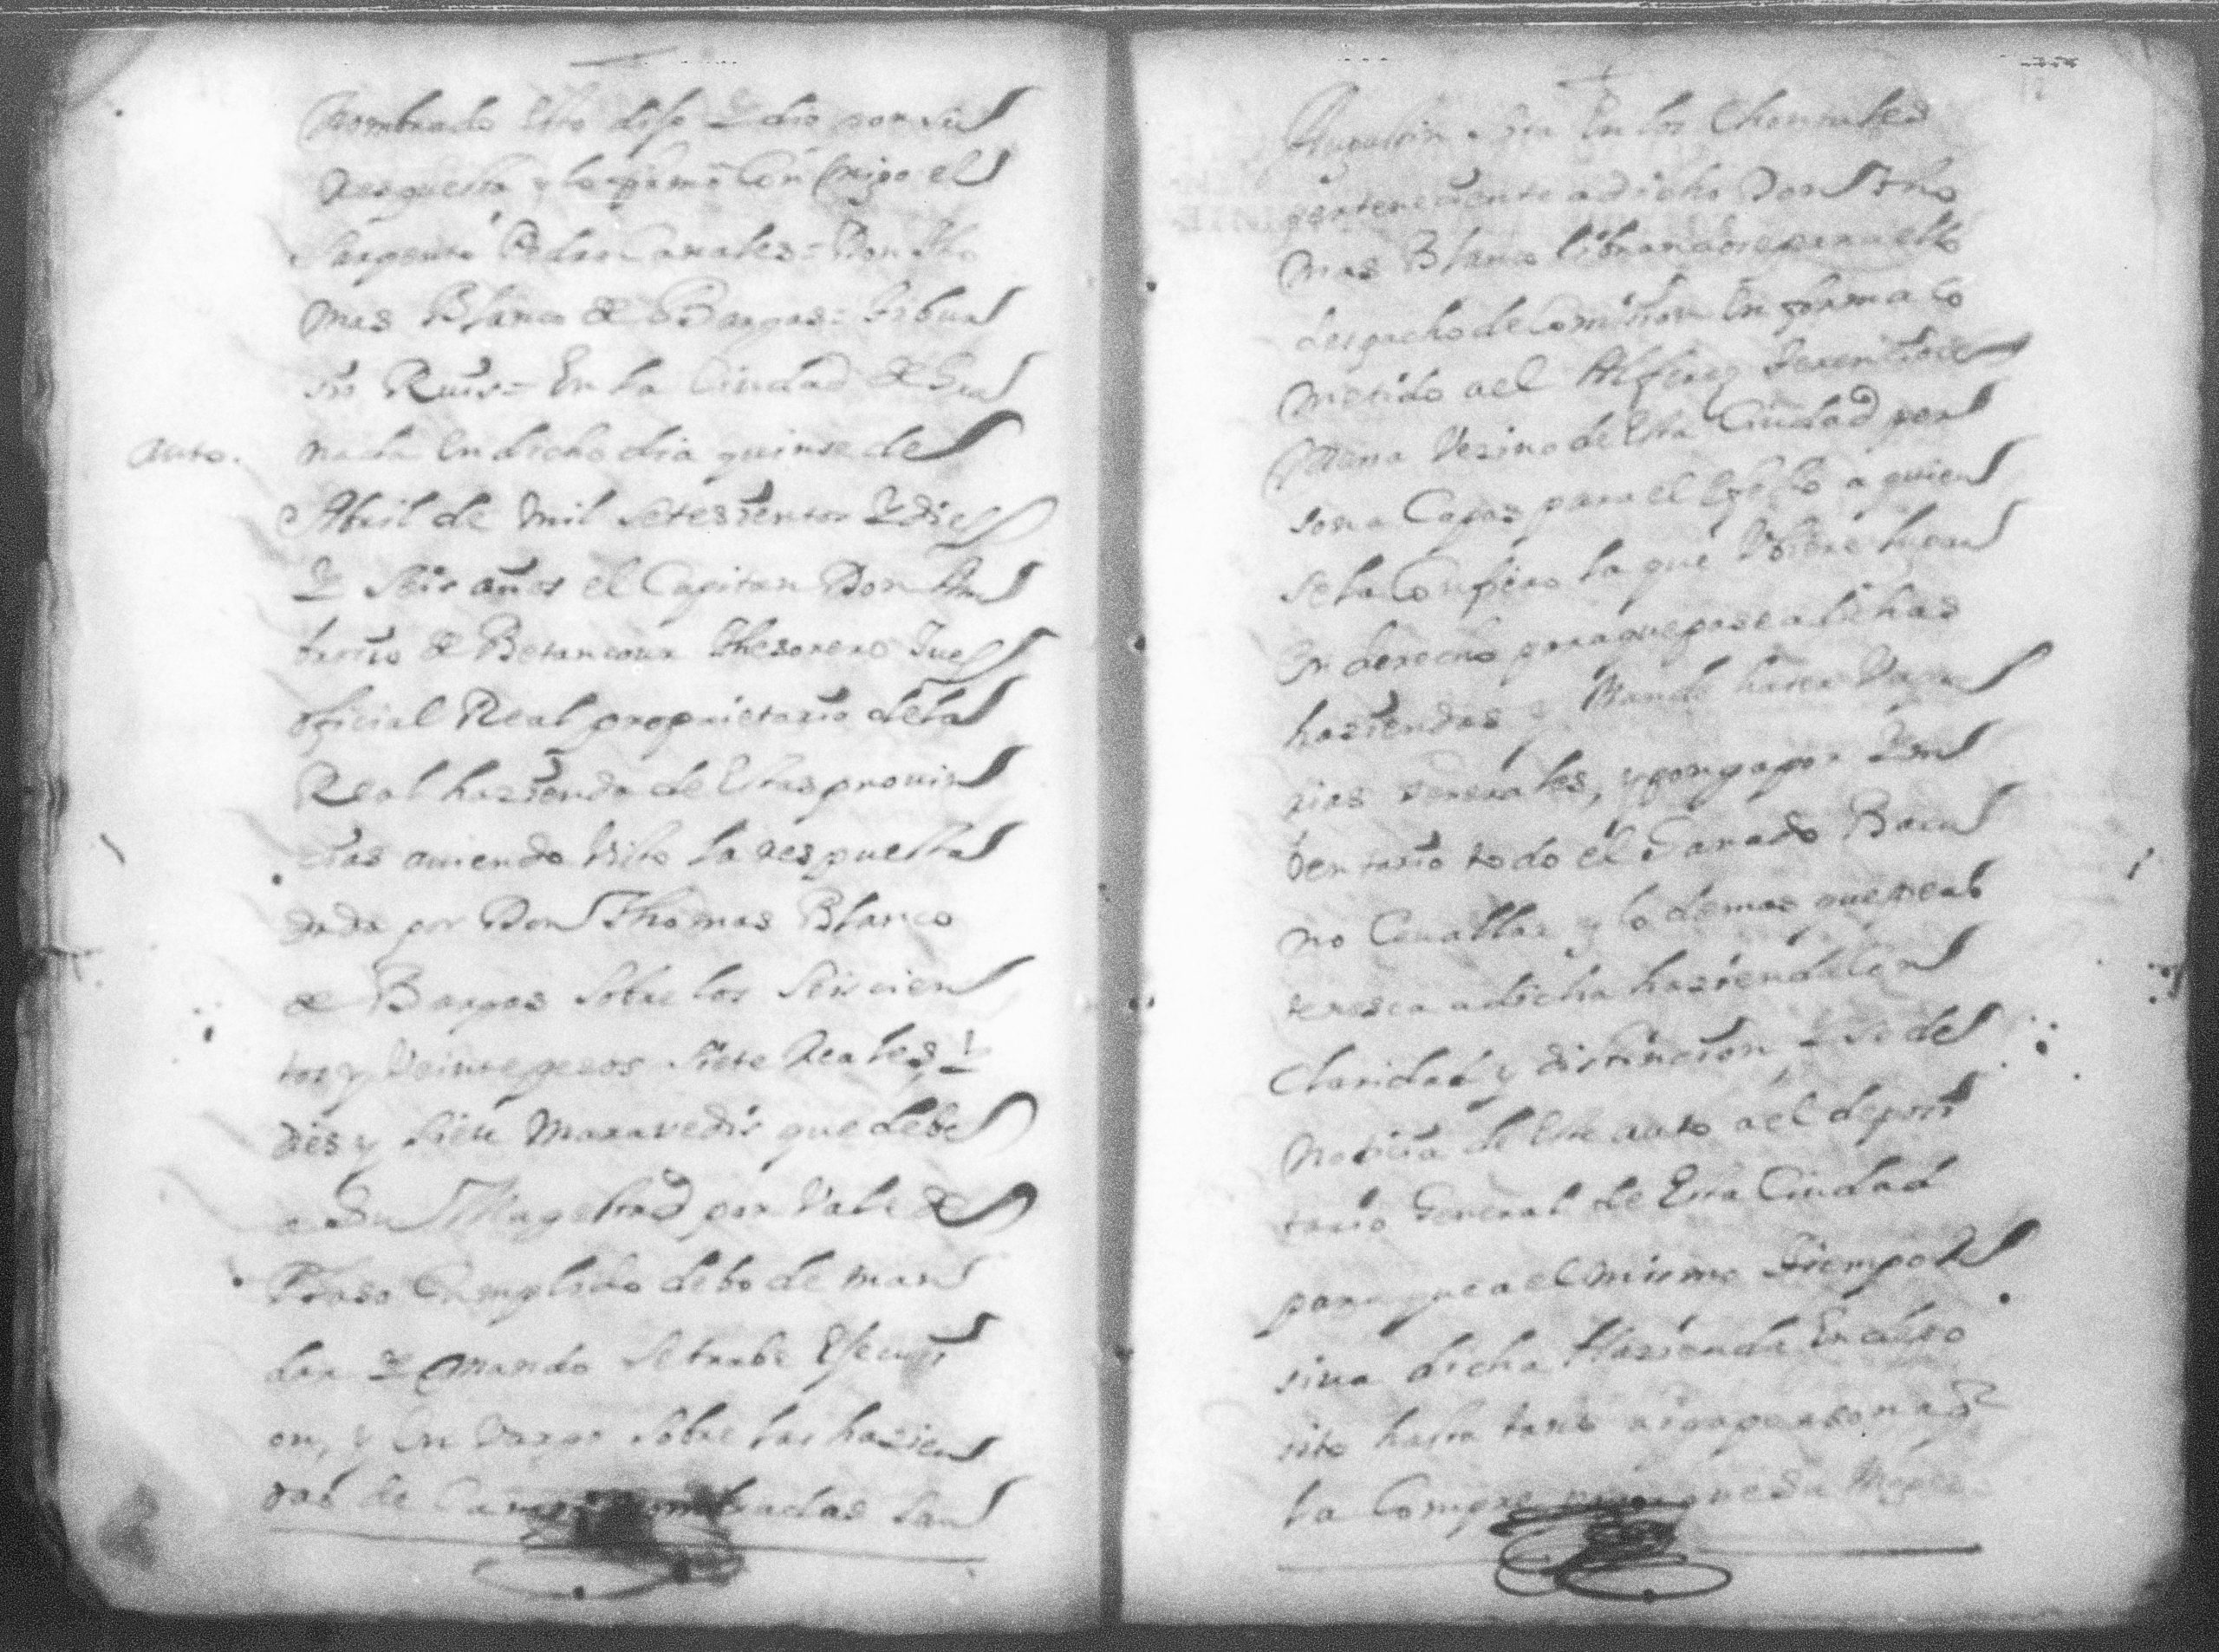 nombrado Esto dijo y dio por su
Respuesta y lo firmó Con migo el
Sargento Pedro Canales = Don Tho
mas Blanco de Bargas = Tibur
sio Ruis = En la Ciudad de Gra
auto.
nada En dicho dia quinse de
Abril de mil setesientos y dies
y seis años el Capitan Don
de Betancour thesorero Jues
oficial Real proprietario de la
Real hazienda de Estas provin
cias auiendo visto la respuesta
dada por Don Thomas Blanco
de Bargas sobre los seis cien
tos y veinte pesos siete Reales y
dies y siete maravedis que debe
a Su Magestad por vale de
Plaso Cumplido debo de man
dar y mando se trabe Execusi
on, y Enbargo sobre las hazien
das de Campo nombradas San
Augustin sita En los Chontales
pertenesiente a dicho Don Tho
mas Blanco librandose para ello
despacho de Comision En forma Co
metido a el Alferez
Mena Vezino de Esta Ciudad per
sona Capas para el Efecto a quien
se la Confiero la que Vbiere lugar
En derecho para que pase a dichas
haziendas y Mande haser Vaque
rias generales, y ponga por Yn
bentario todo el Ganado Bacu
no Cauallar y lo demas que
teresca a dicha hazienda Con
Claridad y distincion y se de
noticia de Este auto a el deposi
tario General de Esta Ciudad
para que a el mismo tiempo
siua dicha Hazienda En depo
sito hasta tanto aiga persona q
la Compre